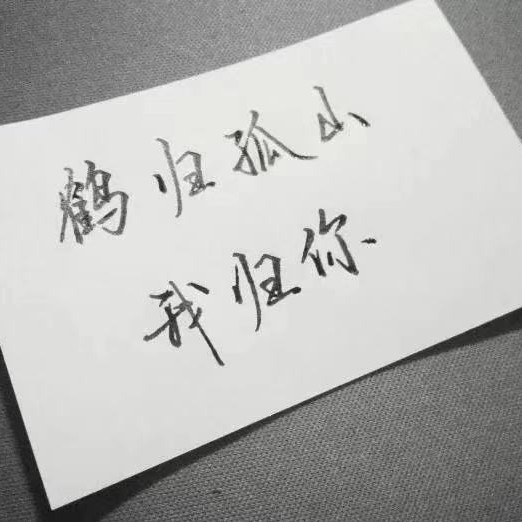 鹤归孤山
我归你